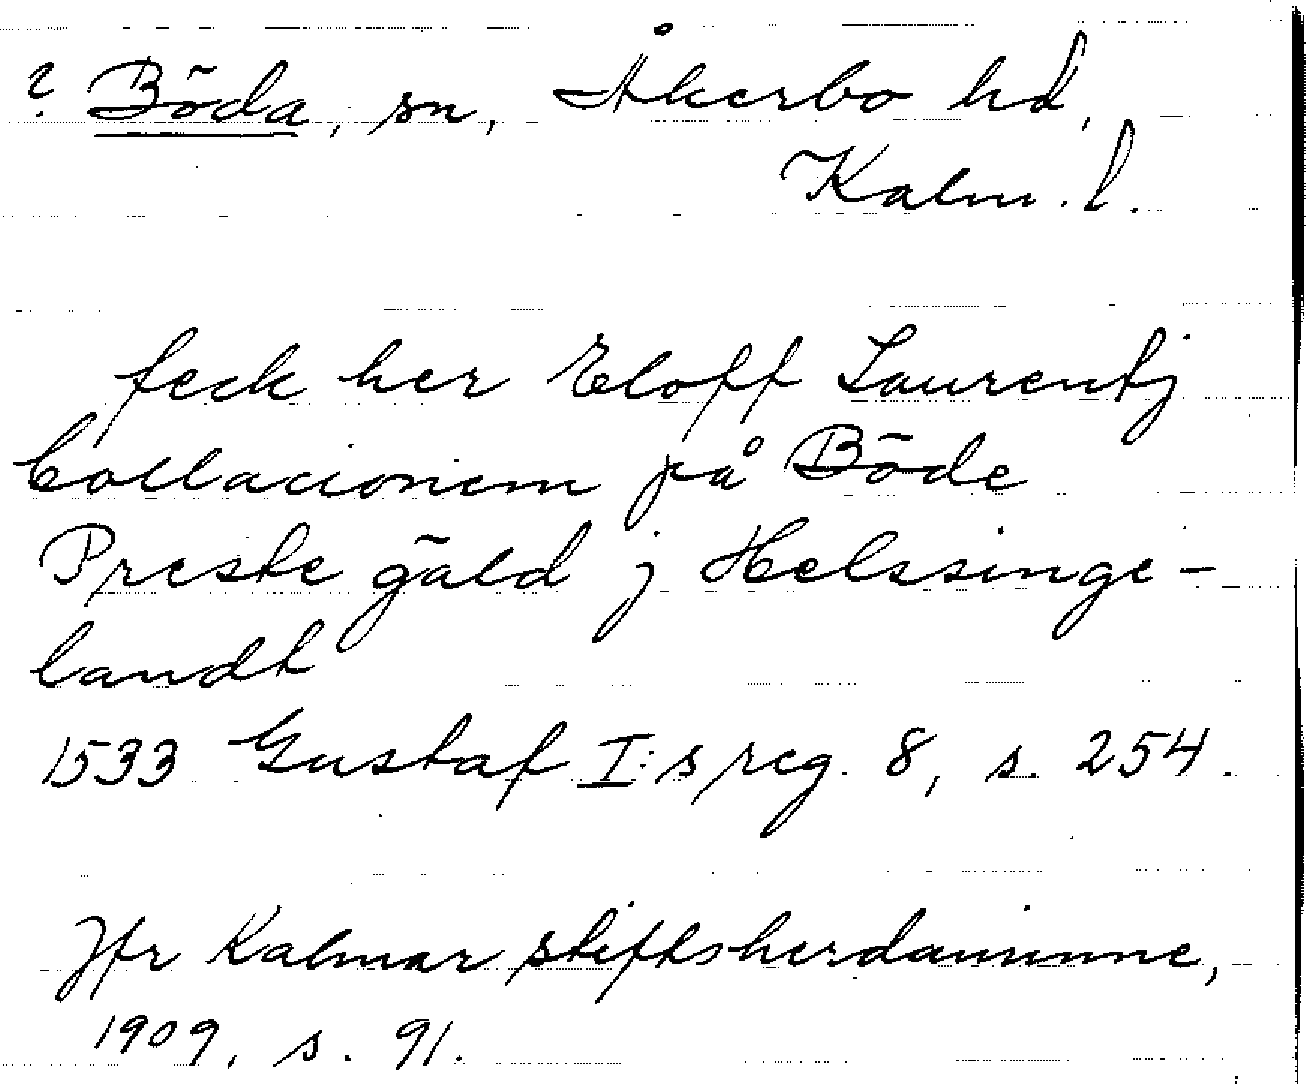 ? Böda, sn, Åkerbo hd,
Kalm. l.
feck her Eloff Laurentj
Collacionem på Böde
Preste gäld j Helssinge-
landt
1533 Gustaf I:s reg. 8, s. 254.
Jfr Kalmar stiftsherdaminne,
1909, s. 91.